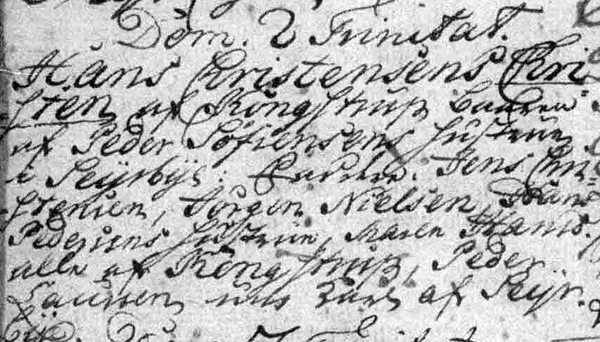 Dom. 2 Trinitat.
Hans Christensens Chri-
sten af Kongstrup baaren
af Peder Sofrensens Hustrue
i Seyrbÿe. Faddere. Jens Chri-
stensen, Jörgen Nielsen, Hans
Pedersens Hustrue, Maren Hans.
alle af Kongstrup, Peder
Laursen af Seÿr-
bÿe.